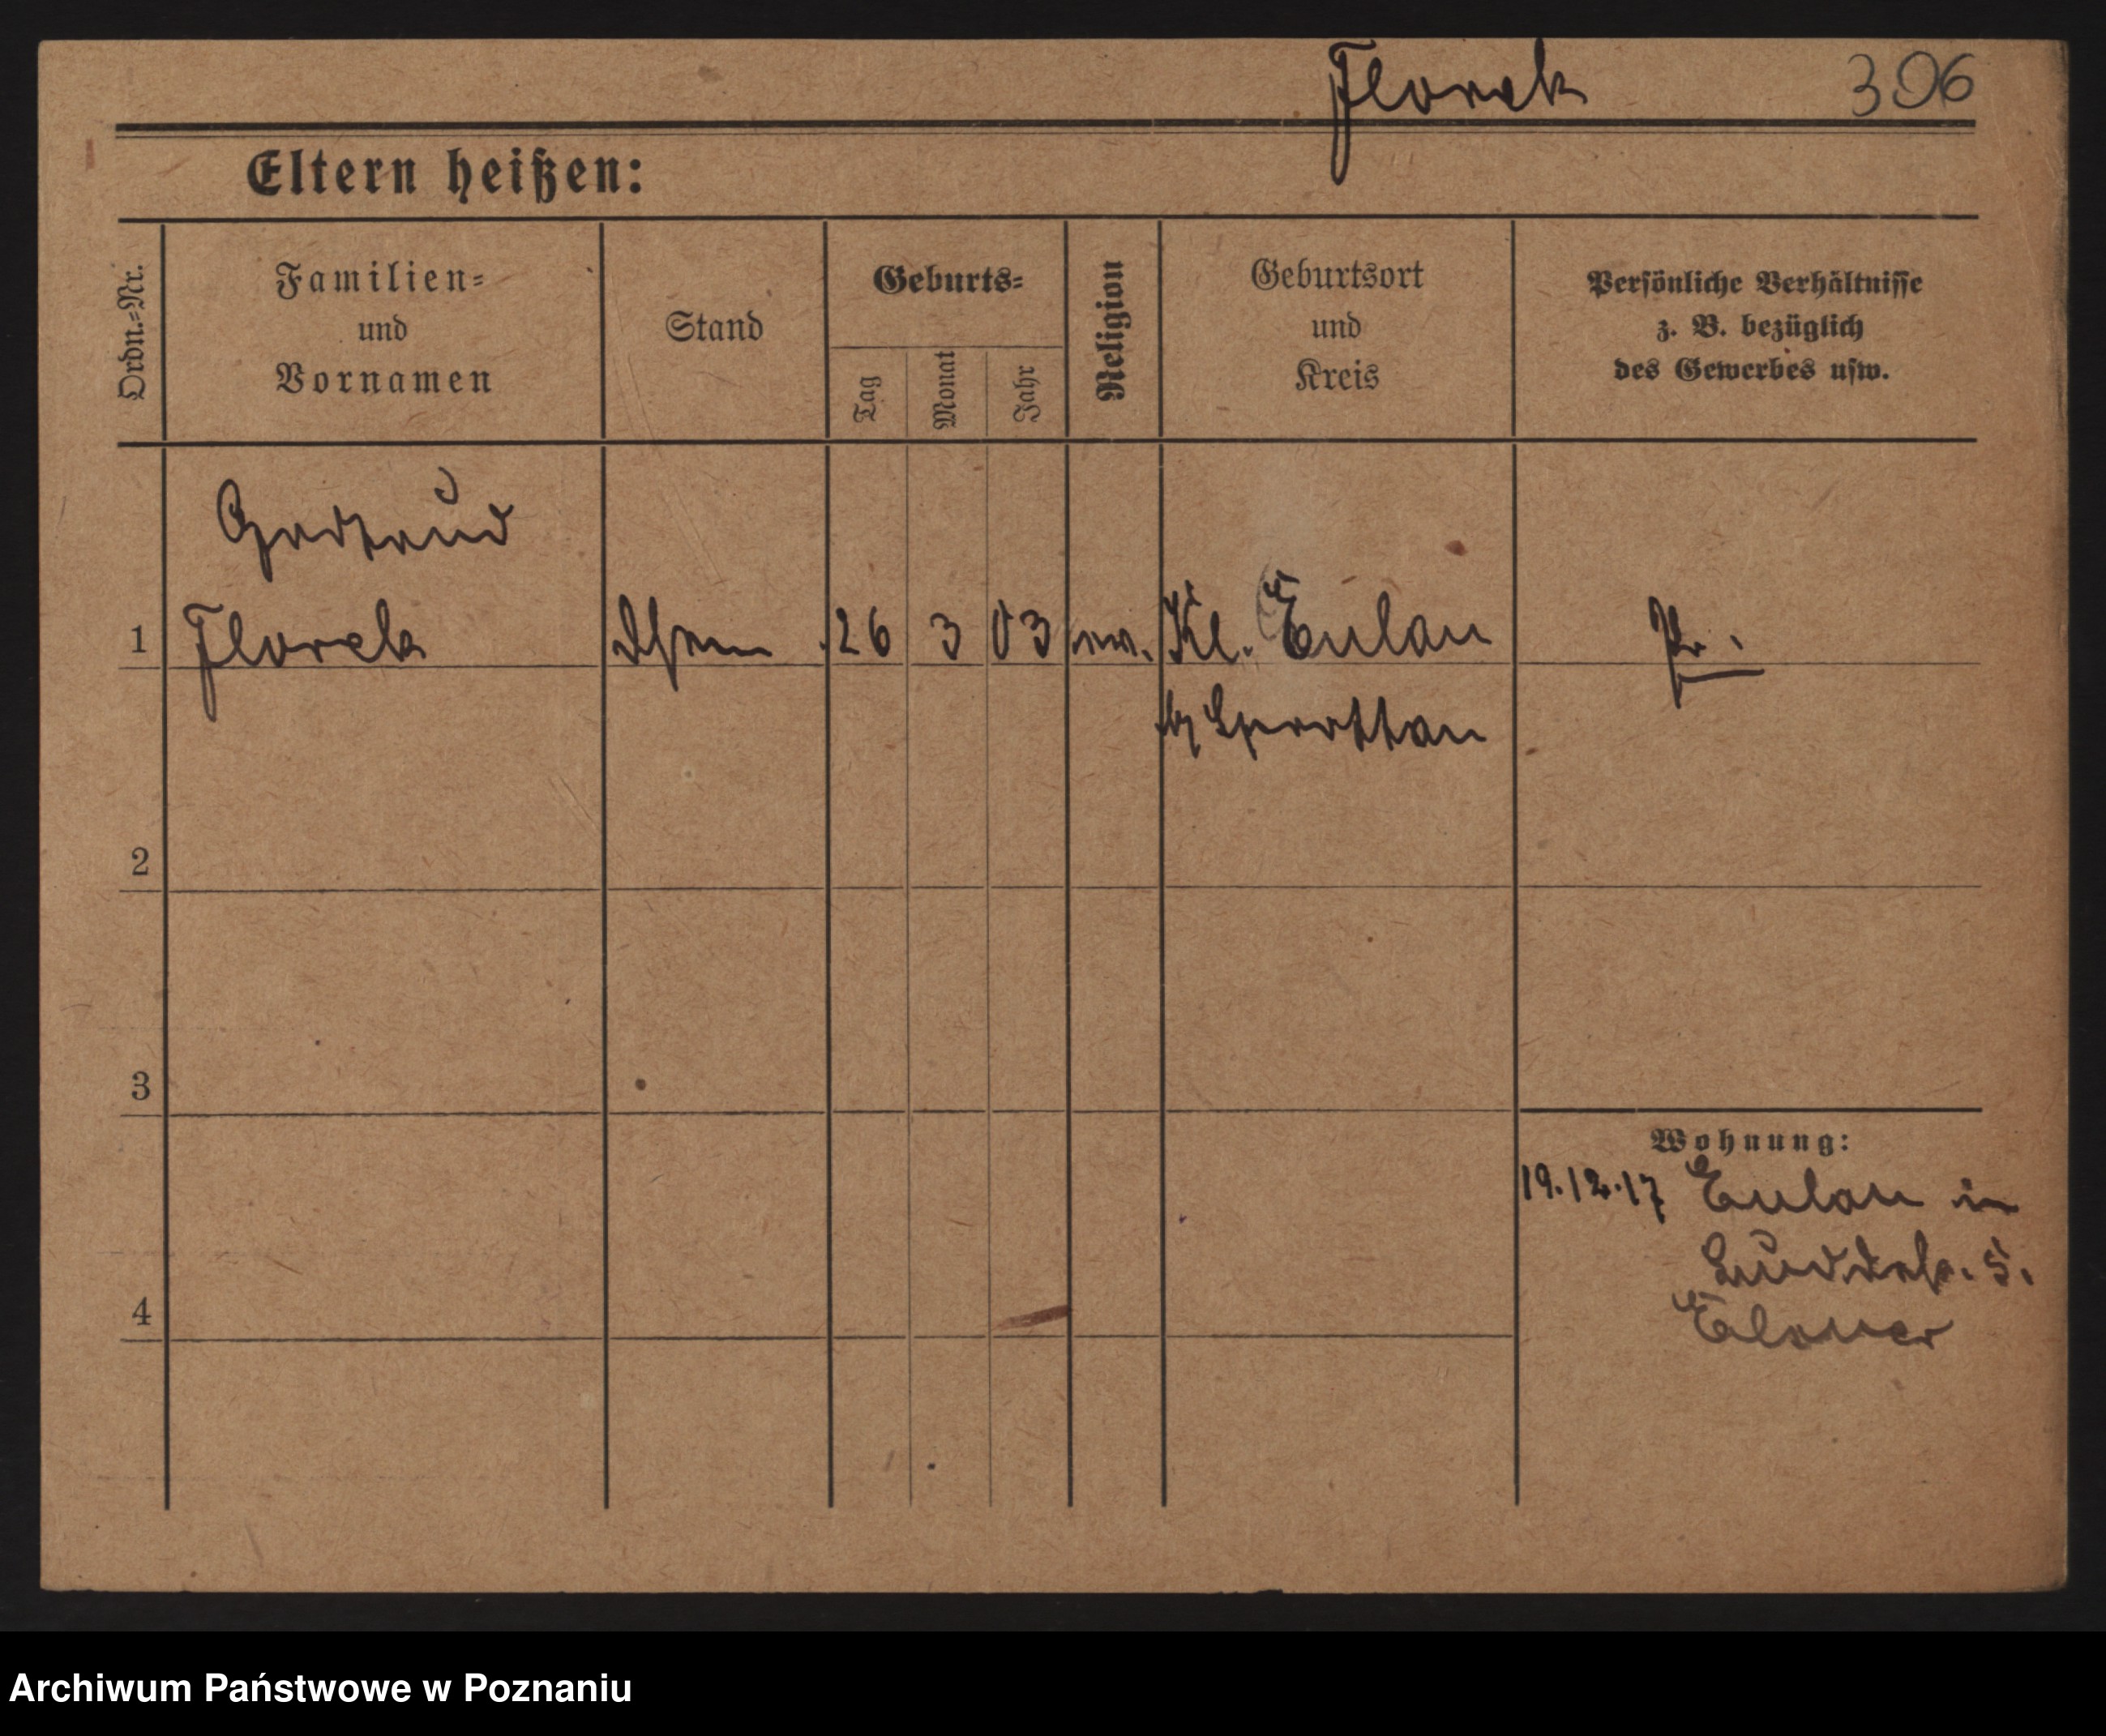 Florek 306
Eltern heißen:
Ordn.=Nr.
Familien=
und
Vornamen
Stand
Geburts=
Tag
Monat
Jahr
Religion
Geburtsort
und
Kreis
Persönliche Verhältnisse
z. B. bezüglich
des Gewerbes usw.
Gertraud
1 Florek 26 3 03 ev. Kl. Eulau Pr.
b/ Sprottau
2
3
4
Wohnung:
19.12.17 Eulau in
5.
Archiwum Państwowe w Poznaniu